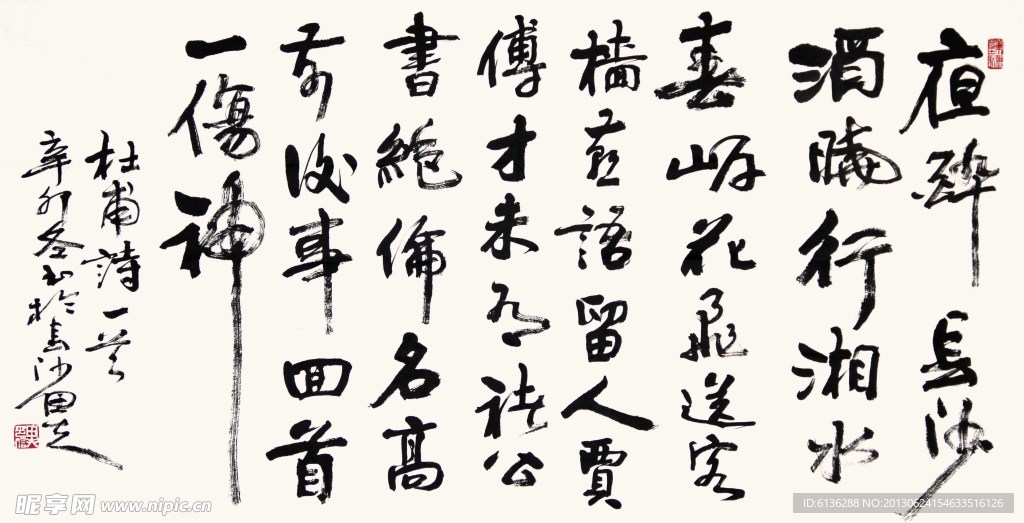 夜醉長沙
酒曉行湘水
春岸花飛送客
檣燕語留人賈
傅才未有褚公
書絕倫名高
前後事回首
一傷神
杜甫詩一首
辛卯冬书於長沙田
昵享网 www.nipic.cn
ID:6136288 NO:20130624154633516126